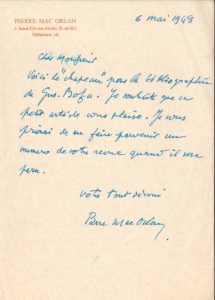 PIERRE MAC ORLAN
à Saint-Cyr-sur-Morin (S.-et-M.)
Téléphone 16.
6 mai 1948
Cher Monsieur
Voici le "chapeau" pour la bibliographie
de Gus. Bofa. Je souhaite que ce
petit article vous plaise. Je vous
prierai de me faire parvenir un
numéro de votre revue quand il sera
paru.
votre tout dévoué
Pierre Mac Orlan